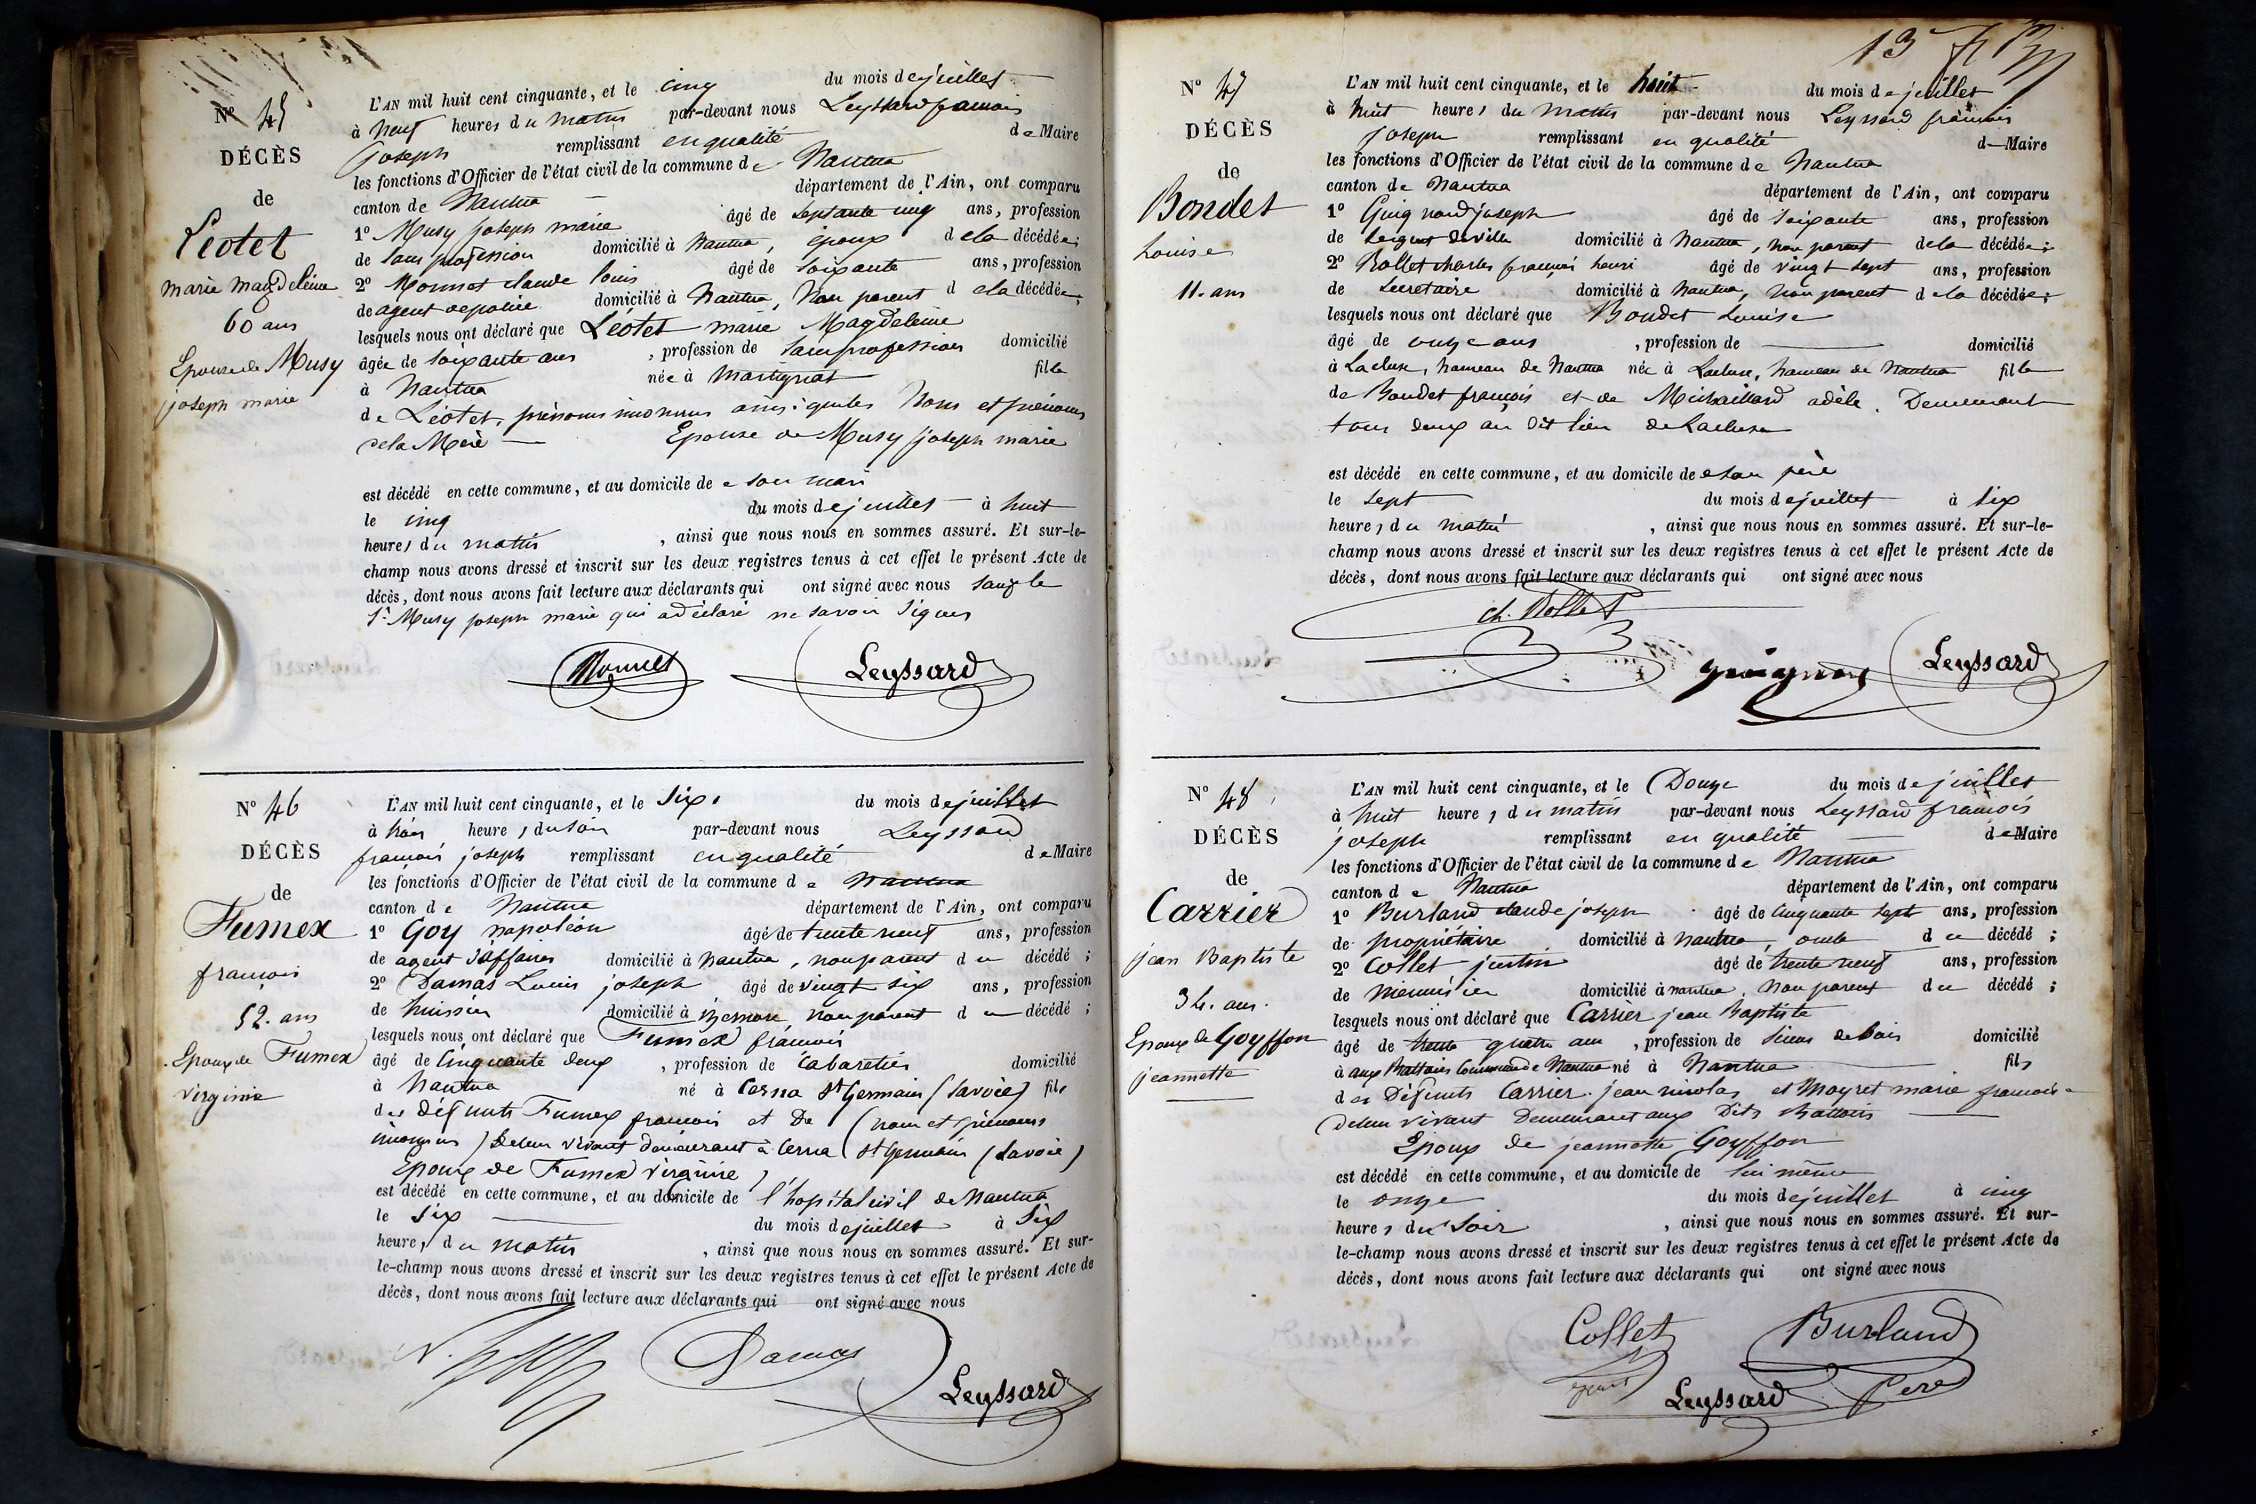 N° 45
DÉCÈS
de
Léotet
marie magdeleine
60 ans
Epouse de Musy
joseph marie
L'AN mil huit cent cinquante, et le cinq du mois de juillet
à neuf heures du matin par-devant nous Leyssard françois
joseph remplissant en qualité de Maire
les fonctions d'Officier de l'état civil de la commune de Nantua
canton de Nantua département de l'Ain, ont comparu
1° Musy joseph marie âgé de septante cinq ans, profession
de sans profession domicilié à Nantua, époux de la décédée;
2° Monnet claude louis âgé de soixante ans, profession
de agent de police domicilié à Nantua, non parent de la décédée;
lesquels nous ont déclaré que Léotet marie Magdeleine
âgée de soixante ans, profession de sans profession domicilié
à Nantua née à Martignat fille
de Léotet, prénoms inconnus ainsi que les Noms et prénoms
de la Mère — Epouse de Musy joseph marie
est décédé en cette commune, et au domicile de son mari
le cinq du mois de juillet à huit
heures du matin, ainsi que nous nous en sommes assuré. Et sur-le-
champ nous avons dressé et inscrit sur les deux registres tenus à cet effet le présent Acte de
décès, dont nous avons fait lecture aux déclarants qui ont signé avec nous sauf le
sr Musy joseph marie qui a déclaré ne savoir signer
Monnet Leyssard
N° 46
DÉCÈS
de
Fumex
françois
52. ans
Epoux de Fumex
virginie
L'AN mil huit cent cinquante, et le six du mois de juillet
à trois heures du soir par-devant nous Leyssard
françois joseph remplissant en qualité de Maire
les fonctions d'Officier de l'état civil de la commune de Nantua
canton de Nantua département de l'Ain, ont comparu
1° Goy napoléon âgé de trente neuf ans, profession
de agent d'affaires domicilié à Nantua, non parent du décédé;
2° Damas Louis joseph âgé de vingt six ans, profession
de huissier domicilié à non parent du décédé;
lesquels nous ont déclaré que Fumex françois
âgé de cinquante deux, profession de cabaretier domicilié
à Nantua né à Cerna St Germain (Savoie) fils
des défunts Fumex françois et De (nom et prénoms
inconnus) De leur vivant demeurant à Cerna St Germain (Savoie)
Epoux de Fumex virginie
est décédé en cette commune, et au domicile de l'hopital civil de Nantua
le six du mois de juillet à six
heures du matin, ainsi que nous nous en sommes assuré. Et sur-
le-champ nous avons dressé et inscrit sur les deux registres tenus à cet effet le présent Acte de
décès, dont nous avons fait lecture aux déclarants qui ont signé avec nous
N. Damas
Leyssard
13
N° 47
DÉCÈS
de
Bondet
Louise
11. ans
L'AN mil huit cent cinquante, et le huit du mois de juillet
à huit heures du matin par-devant nous Leyssard françois
joseph remplissant en qualité de Maire
les fonctions d'Officier de l'état civil de la commune de Nantua
canton de Nantua département de l'Ain, ont comparu
1° Guignard joseph âgé de soixante ans, profession
de sergent de ville domicilié à Nantua, non parent de la décédée;
2° Rollet charles françois henri âgé de vingt sept ans, profession
de secretaire domicilié à Nantua, non parent de la décédée;
lesquels nous ont déclaré que Bondet Louise
âgé de onze ans, profession de — domicilié
à Lacluse, hameau de Nantua née à Lacluse, hameau de Nantua fille
de Bondet françois et de Michaillard adèle. Demeurant
tous deux au dit lieu de Lacluse
est décédé en cette commune, et au domicile de son père
le sept du mois de juillet à six
heures du matin, ainsi que nous nous en sommes assuré. Et sur-le-
champ nous avons dressé et inscrit sur les deux registres tenus à cet effet le présent Acte de
décès, dont nous avons fait lecture aux déclarants qui ont signé avec nous
ch. Rollet
guignard Leyssard
N° 48
DÉCÈS
de
Carrier
jean Baptiste
34. ans.
Epoux de Goyffon
jeannette
L'AN mil huit cent cinquante, et le Douze du mois de juillet
à huit heures du matin par-devant nous Leyssard françois
joseph remplissant en qualité de Maire
les fonctions d'Officier de l'état civil de la commune de Nantua
canton de Nantua département de l'Ain, ont comparu
1° Burland claude joseph âgé de cinquante sept ans, profession
de propriétaire domicilié à Nantua, oncle du décédé;
2° Collet justin âgé de trente neuf ans, profession
de menuisier domicilié à nantua, non parent du décédé;
lesquels nous ont déclaré que Carrier jean Baptiste
âgé de trente quatre ans, profession de scieur de bois domicilié
à aux Battoirs Commune de Nantua né à Nantua fils
des Défunts Carrier jean nicolas et Moyret marie françoise
De leur vivant Demeurant aux Dits Battoirs
Epoux de jeannette Goyffon
est décédé en cette commune, et au domicile de lui même
le onze du mois de juillet à cinq
heures du soir, ainsi que nous nous en sommes assuré. Et sur-
le-champ nous avons dressé et inscrit sur les deux registres tenus à cet effet le présent Acte de
décès, dont nous avons fait lecture aux déclarants qui ont signé avec nous
Collet Burland
Leyssard Pere